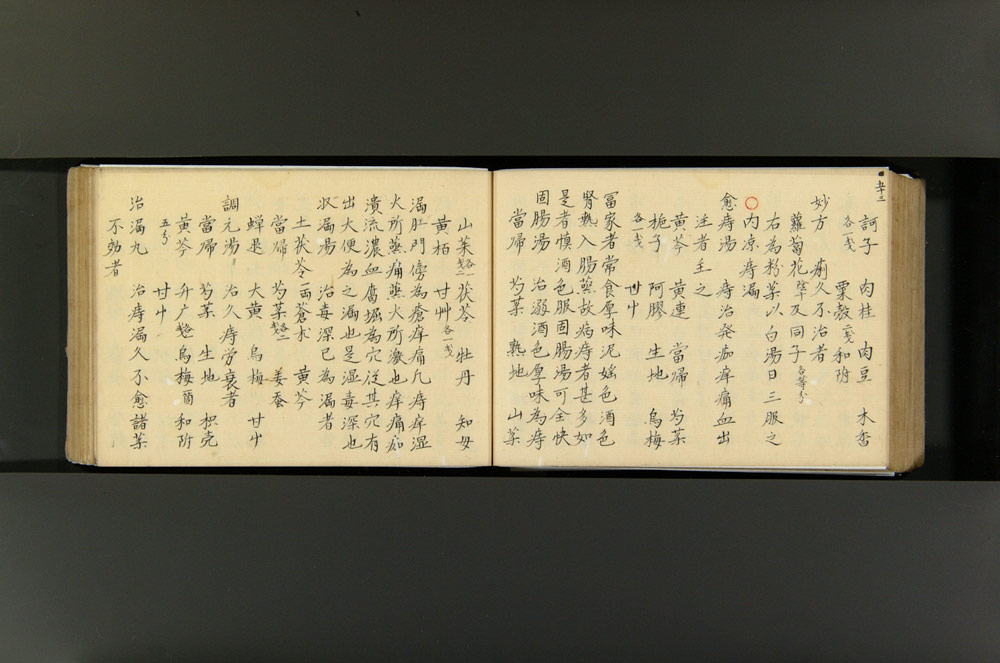 五十三
訶子 肉桂 肉豆 木香
各一戔
粟殼 二戔 和附
妙方 痢久不治者
蘿蔔花 及同子 各等分
右為粉薬以白湯日三服之
〇内凉 痔漏
愈痔湯 痔治発痂痒痛血出
注者主之
黄芩 黄連 當帰 芍薬
梔子 阿膠 生地 烏梅
各一戔 甘屮
冨家者常食厚味泥婬色酒色
腎熱入腸蒸故病痔者甚多如
是者慎酒色服固腸湯可全快
固腸湯 治溺酒色厚味為痔
當帰 芍薬 熟地 山薬
山茱 各一戔二 茯苓 牡丹 知母
黄栢 甘艸 各一戔
漏肛門傍為瘡痒痛凡痔痒湿
火所蒸痛蒸火所激也痒痛痂
潰流濃血腐堀為穴従其穴有
出大便為之漏也是湿毒深也
収漏湯 治毒深已為漏者
土茯苓 一両 蒼朮 黄芩
當帰 芍薬 各戔二 姜蚕
蝉退 大黄 烏梅 甘屮
調元湯 治久痔労衰者
當帰 芍薬 生地 枳壳
黄芩 升广 各戔 烏梅 二箇 和附
五分 甘屮
治漏丸 治痔漏久不愈諸薬
不効者